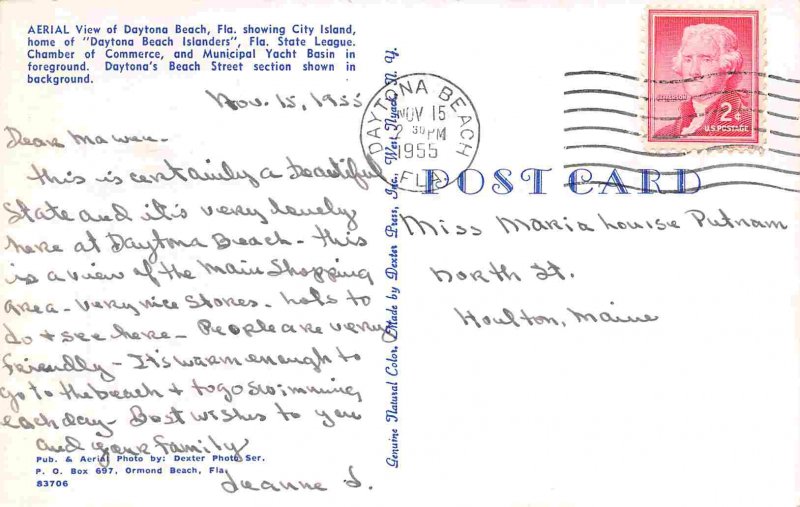 AERIAL View of Daytona Beach, Fla. showing City Island,
home of "Daytona Beach Islanders", Fla. State League.
Chamber of Commerce, and Municipal Yacht Basin in
foreground. Daytona's Beach Street section shown in
background.
Nov. 15, 1955
Dear
This is certainly a beautiful
State and it's very lovely
here at Daytona Beach - this
is a view of the Main Shopping
area - very nice stores - lots to
do + see here - People are very
friendly - It's warm enough to
go to the beach + to go swimming
each day - Best wishes to you
and your family
Jeanne S.
Pub. & Aerial Photo by: Dexter Photo Ser.
P. O. Box 697, Ormond Beach, Fla.
83706
Genuine Natural Color, Made by Dexter Press, Inc., West Nyack, N. Y.
DAYTONA BEACH
NOV 15
30 PM
1955
FLA.
2¢
U.S. POSTAGE
POST CARD
Miss Maria Louise Putnam
North St.
Houlton, Maine